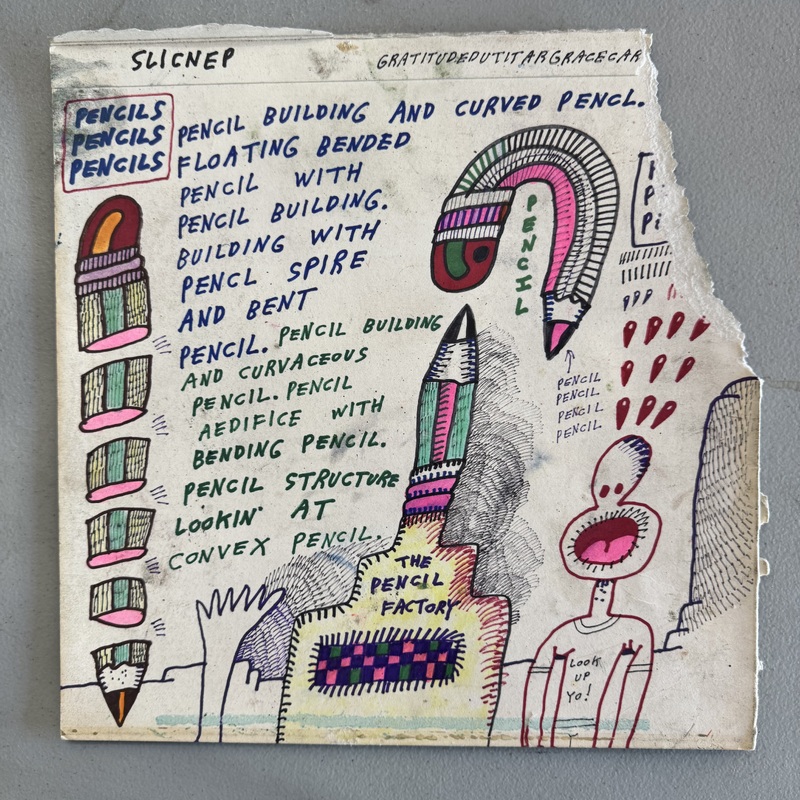 SLICNEP
GRATITUDEDUTITARGRACECAR
PENCILS
PENCILS
PENCILS
PENCIL BUILDING AND CURVED PENCL.
FLOATING BENDED
PENCIL WITH
PENCIL BUILDING.
BUILDING WITH
PENCL SPIRE
AND BENT
PENCIL. PENCIL BUILDING
AND CURVACEOUS
PENCIL. PENCIL
AEDIFICE WITH
BENDING PENCIL.
PENCIL STRUCTURE
LOOKIN' AT
CONVEX PENCIL.
PENCIL
PENCIL
PENCIL
PENCIL
PENCIL
THE
PENCIL
FACTORY
LOOK
UP
YO!